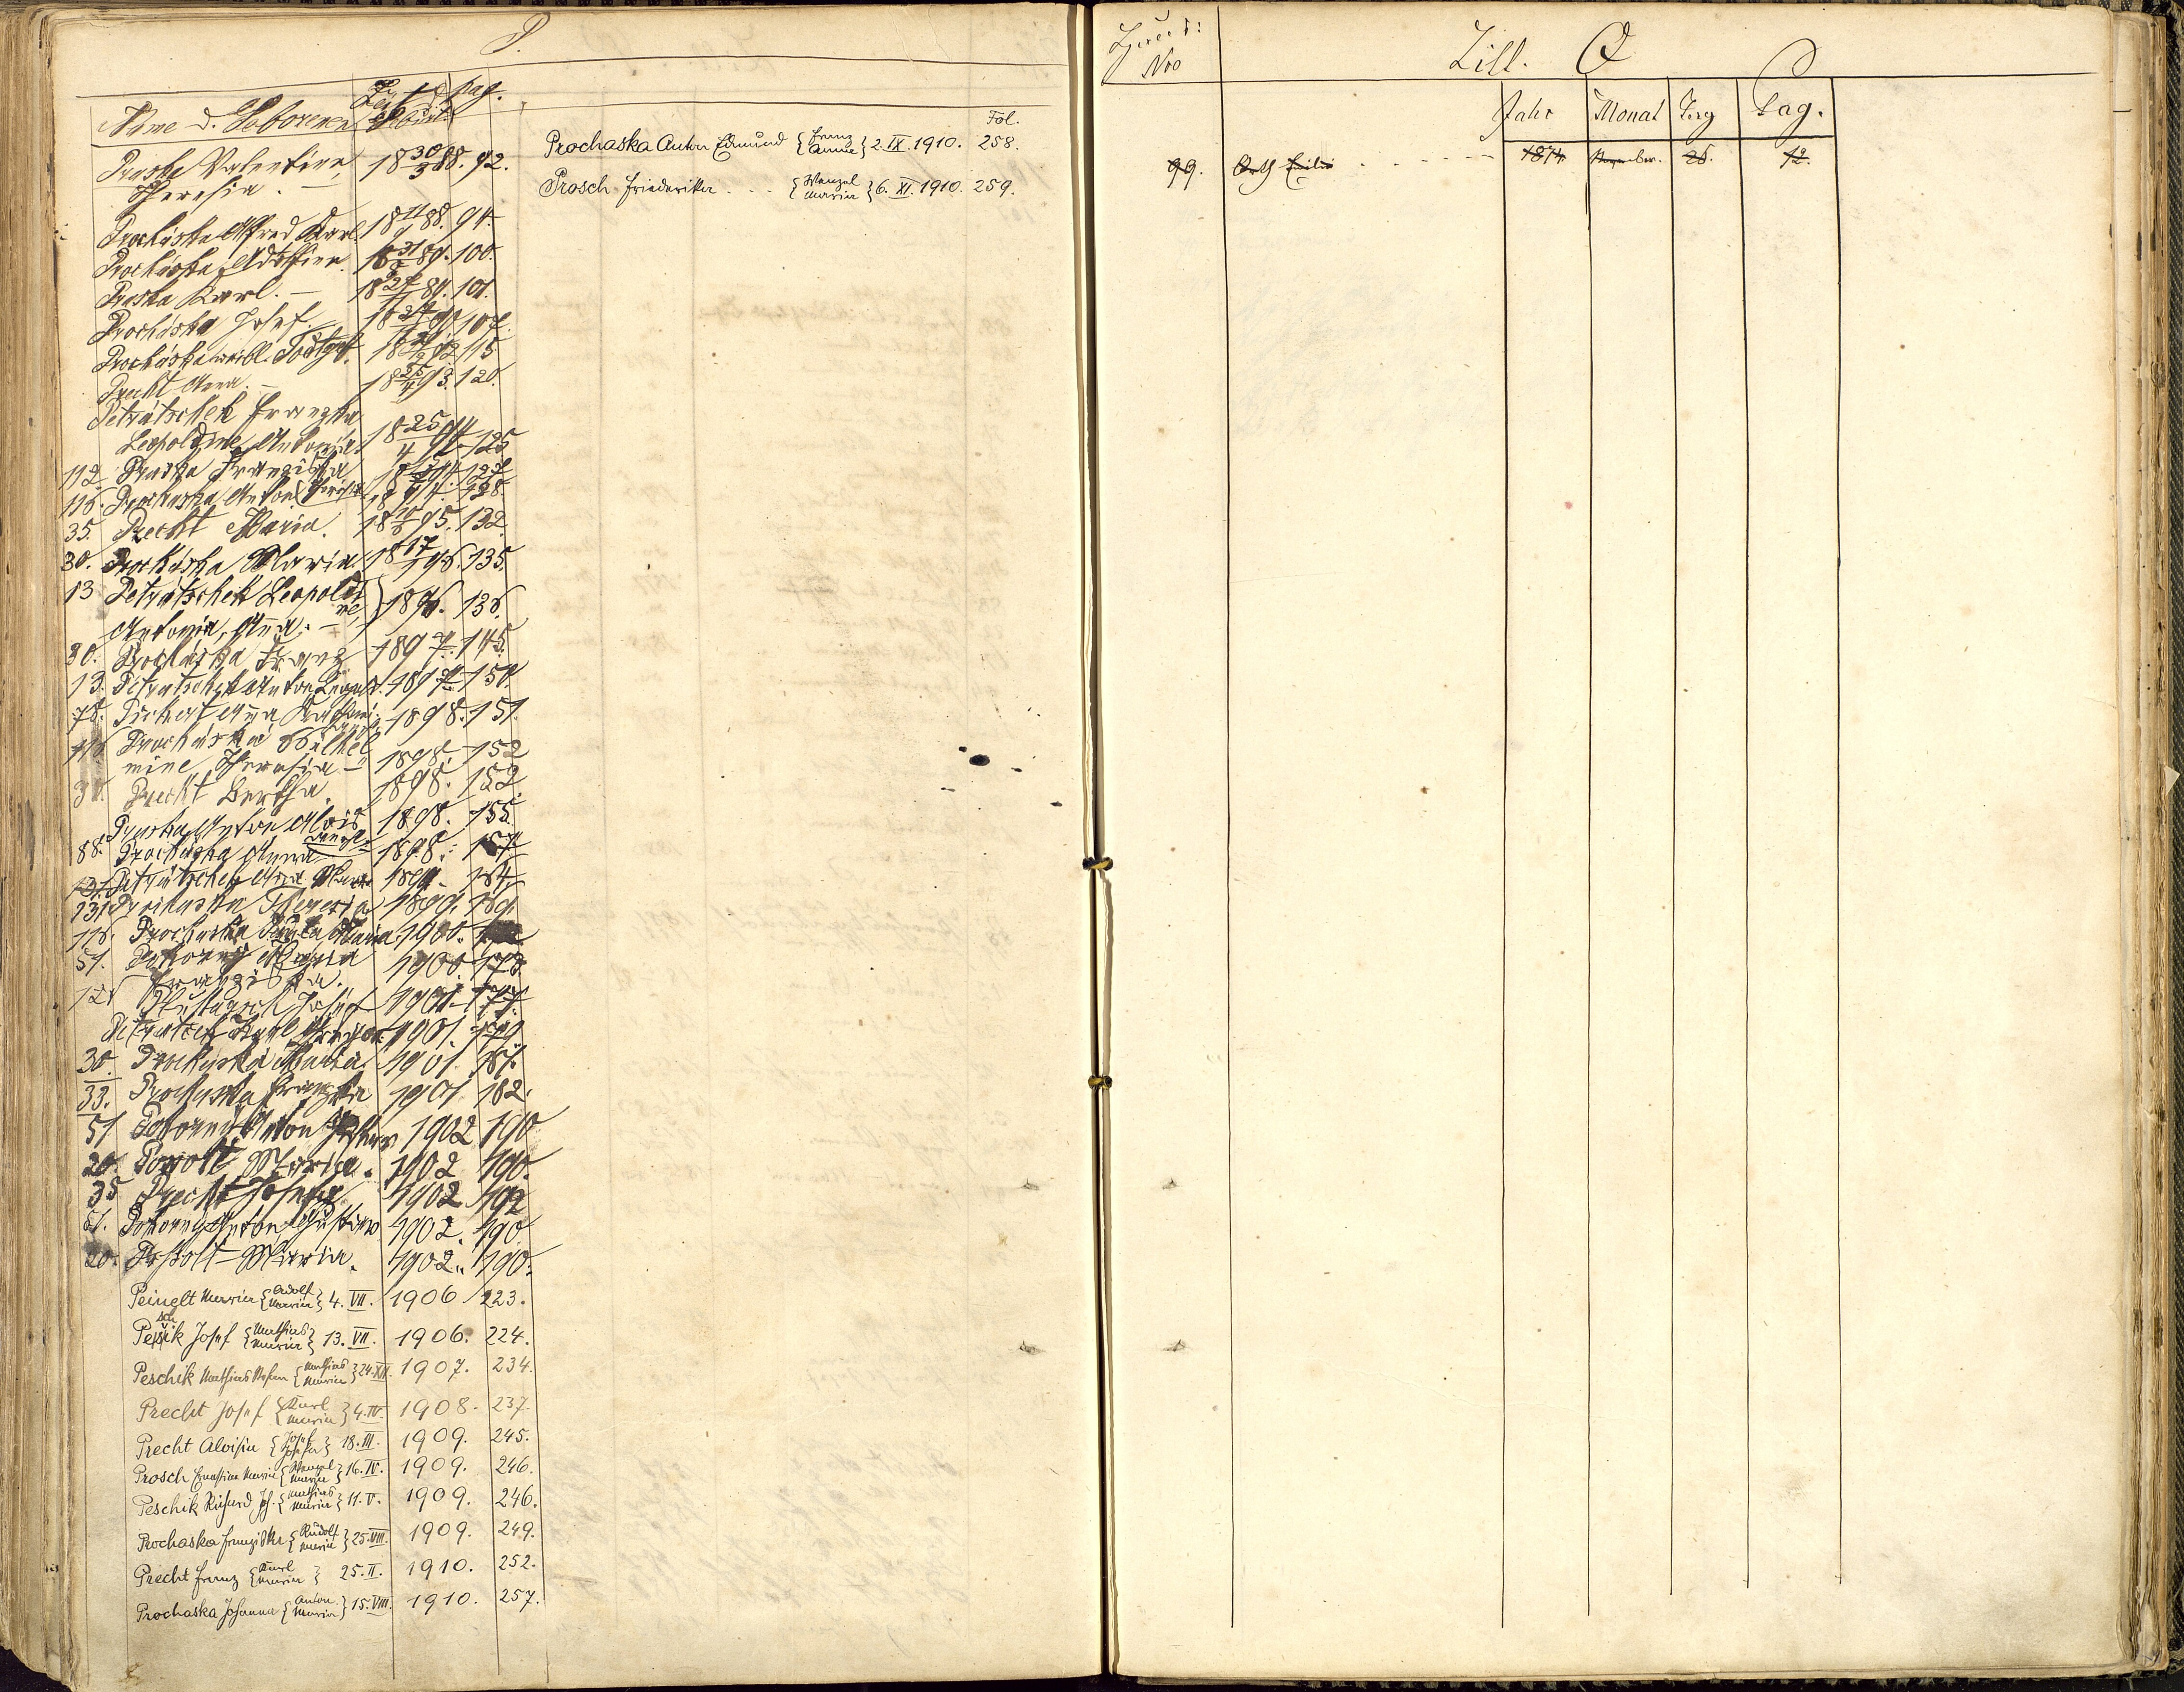 P.
Name d. Geborenen Zeit d. Geburt pag.
Praska Valentine, 18 30/3 88. 92.
Theresia. —
Procháska Alfred Karl. 18 11/9 88. 94.
Procháska Adolfine. 18 31/ 89. 100.
Praska Karl. — 18 27/ 89. 101.
Procháska Josef. — 18 90. 107.
Procháska weibl. Todtgeb. 18 92. 115
Precht Anna. — 18 25/ 93. 120.
Petrátschek Franziska
Leopoldine, Antonia 18 25/4 94. 125
112. Praska Franziska 18 94. 127.
116. Prochaska Anton 18 94. 128.
35. Precht Maria. 18 95. 132
30. Procháska Maria 18 17/ 96. 135.
13 Petrátschek Leopoldi
ne, 1896. 136.
Antonia, Anna. —
30. Procháska Franz 1897. 145.
13. Petratschek Anton Leopold. 1897. 150.
78. Pichert Anna 1898. 151.
116 Procháska Wilhel
mine, Theresia — 1898. 152
35. Precht Bertha. 1898. 152.
Praska Anton Alois 1898. 155.
88. Prochaska Anna 1898. 157
Petrátschek Anna 1899. 164.
131 Prochaska Theresia 1899. 169.
116. Prochaska Maria. 1900.
51. Pokorny Maria 1900. 173.
Franziska.
Josef 1901. 177.
Petratschek Karl 1901. 179
30. Procháska Maria. 1901. 181.
33. Prochaska Franziska 1901. 182.
51 Pokorny Anton Gustav 1902 190
20. Posolt Maria. 1902 190.
35 Precht Josefa 1902 192
51. Pokorny Anton Gustav 1902. 190.
20. Posolt Maria. 1902. 190.
Peinelt Maria {Adolf Maria} 4. VII. 1906 223.
Peschik Josef {Mathias Maria} 13. VII. 1906. 224.
Peschik Mathias Stefan {Mathias Maria} 24. XII. 1907. 234.
Precht Josef {Karl Maria} 4. IV. 1908. 237.
Precht Aloisia {Josef Josefa} 18. III. 1909. 245.
Prosch Ernestine Maria {Wenzel Maria} 16. IV. 1909. 246.
Peschik Richard Joh. {Mathias Maria} 11. V. 1909. 246.
Prochaska Franziska {Rudolf Maria} 25. VIII. 1909. 249.
Precht Franz {Karl Maria} 25. II. 1910. 252.
Prochaska Johanna {Anton. Maria} 15. VIII. 1910. 257.
Fol.
Prochaska Anton Edmund {Franz Anna} 2. IX. 1910. 258.
Prosch Friederike . . . {Wenzel Maria} 6. XI. 1910. 259.
Nro
Litt. Q
Jahr Monat Tag Pag.
99. Emilie 1874 November. 26. 12.